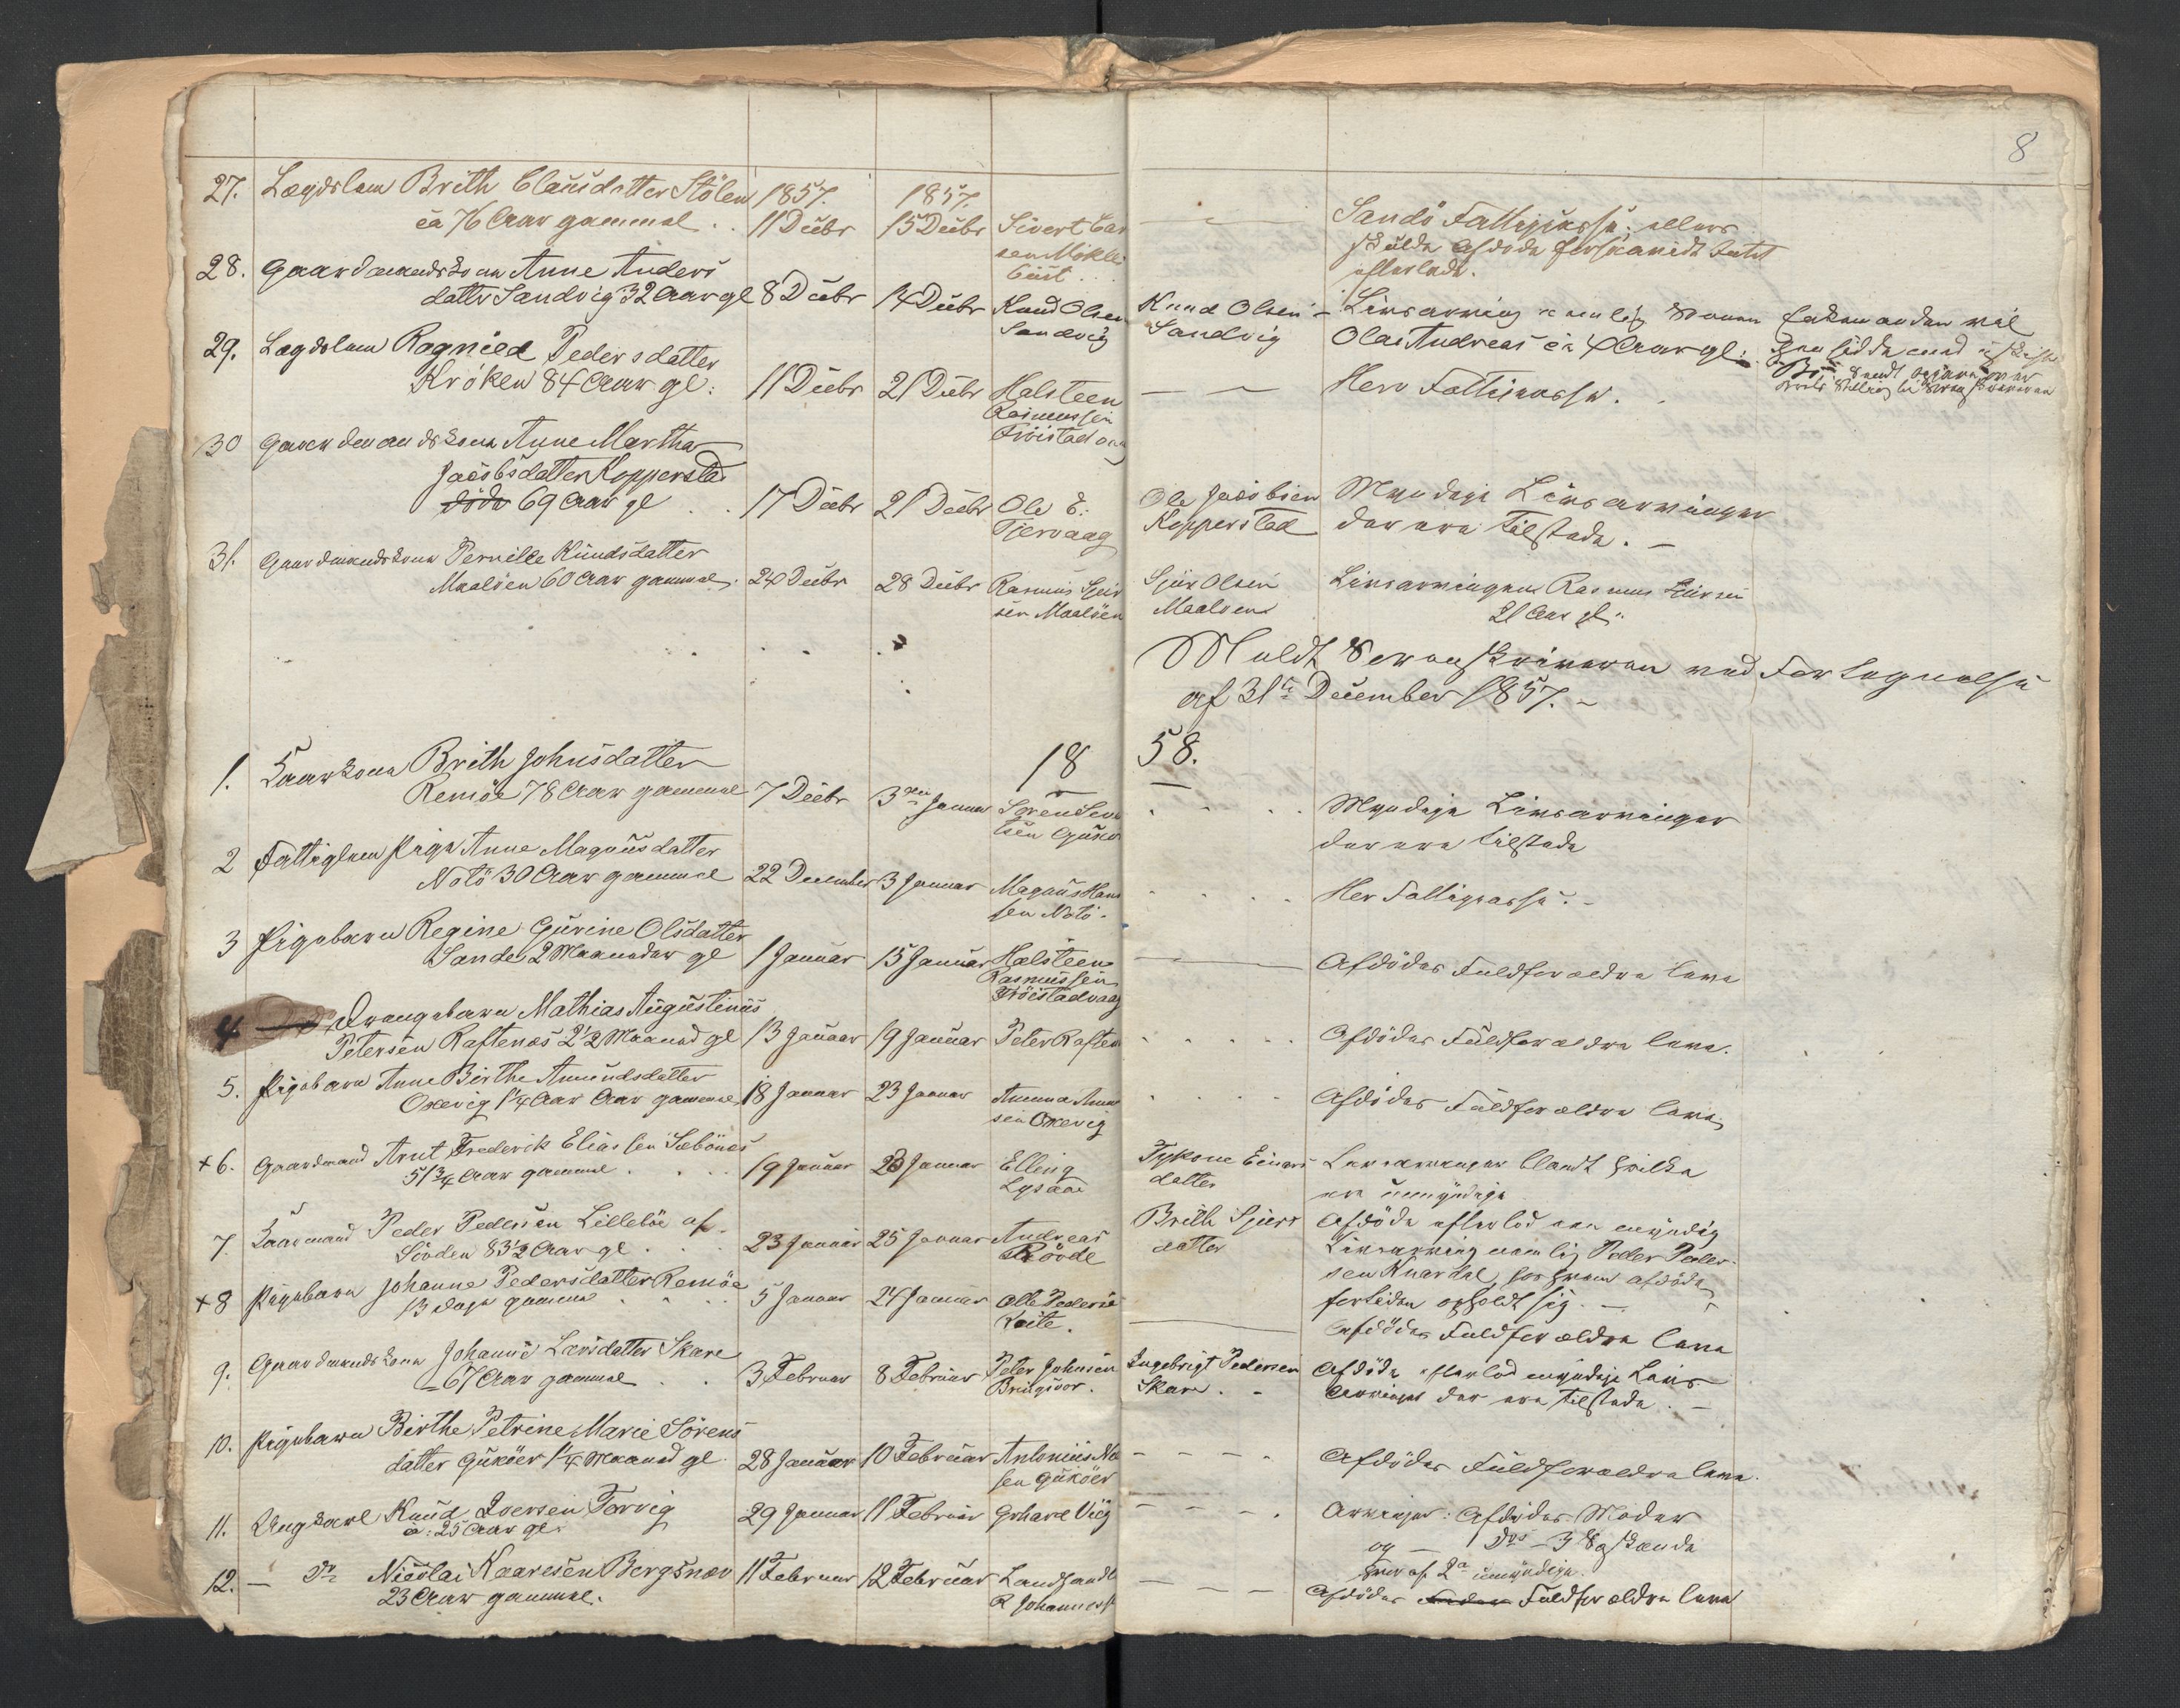 8
27. Lægdslem Brith Clausdatter Stölen 1857. 1857.
ca 76 Aar gammel . . 11 Decbr 15 Decbr Sivert
Sandö Fattigkasse; ellers
skulde Afdöde forhaanden Intet
efterlade.
28. Gaardmandskone Anne Anders
datter Sandvig 32 Aar gl 8 Decbr 14 Decbr Knud Olsen
Sandvig
Knud Olsen - Livsarving nemlig Sönnen
Sandvig Olai Andreas ca 4 Aar gl:
29. Lægdslem Ragnild Pedersdatter
Kröken 84 Aar gl: 11 Decbr 21 Decbr Halsteen
Rasmussen
— — Herö Fattigkasse.
30 Gaardmandskone Anne Martha
Jacobsdatter Kopperstad
döde 69 Aar gl . . 17 Decbr 21 Decbr Ole E.
Tjervaag
Ole Jacobsen Myndige Livsarvinger
Kopperstad der ere tilstede. —
31. Gaardmandskone Pernille Knudsdatter
Maalöen 60 Aar gammel. 24 Decbr 28 Decbr Rasmus Sjur
sen Maalöen
Sjur Olsen Livsarvingen Rasmus
Maalöen 21 Aar gl:
Meldt Sorenskriveren med Fortegnelse
af 31te December 1857. -
18 58.
1. Kaarkone Brith Johnsdatter
Remöe 78 Aar gammel 7 Decbr 3die Januar Sören
Myndige Livsarvinger
der ere tilstede
2 Fattiglem Pige Anne Magnusdatter
Notö 30 Aar gammel 22 December 3 Januar Magnus Han
sen Notö.
Her Fattigkasse. -
3 Pigebarn Regine Gurine Olsdatter
Sande 2 Maaneder gl 1 Januar 15 Januar Halsteen
Rasmussen
Afdödes Fuldforældre leve
4 Drengebarn Mathias Augustinus
Petersen Raftenæs 2 1/2 Maaned gl 13 Januar 19 Januar Peter Raften
Afdödes Fuldforældre leve.
5. Pigebarn Anne Birthe Amundsdatter
Oxevig 1 1/4 Aar Aar gammel 18 Januar 23 Januar
sen Oxevig
Afdödes Fuldforældre leve.
+ 6. Gaardmand Arnt Frederik Eliassen Sæbönes
51 3/4 Aar gammel . . . 19 Januar 23 Januar Elling
Einars Livsarvinger blandt hvilke
datter ere umyndige
7. Kaarmand Peder Pedersen Lilleböe af
Sövden 83 1/2 Aar gl . . . 23 Januar 25 Januar Andreas
Rövde
Brith Sjurs Afdöde efterlod een myndig
datter Livsarving nemlig Peder Peder
sen Knardal, hos hvem afdöde
fortiden opholdt sig. —
+ 8 Pigebarn Johanne Pedersdatter Remöe
13 Dage gammel . . . . 5 Januar 24 Januar Ole Pedersen
Afdödes Fuldforældre leve
9. Gaardmandskone Johanne Larsdatter Skare
67 Aar gammel . . 3 Februar 8 Februar Peter Johnsen
Bringsvor.
Ingebrigt Pedersen Afdöde efterlod myndige Livs-
Skare. - Arvinger der ere tilstede. —
10. Pigebarn Birthe Petrine Marie Sörens
datter Guköer 1 1/4 Maaned gl 28 Januar 10 Februar Antonius
sen Guköer
Afdödes Fuldforældre leve.
11. Ungkarl Knud Iversen Torvig
ca: 25 Aar gl. 29 Januar 11 Februar
Arvinger: Afdödes Moder
og — Do - 3 Sødskende
hvoraf 2 umyndige.
12. — Do Nicolai Kaaresen Bergsnæv 11 Februar 12 Februar Landhandl
23 Aar gammel. R Johanness
Afdödes Fuldforældre leve